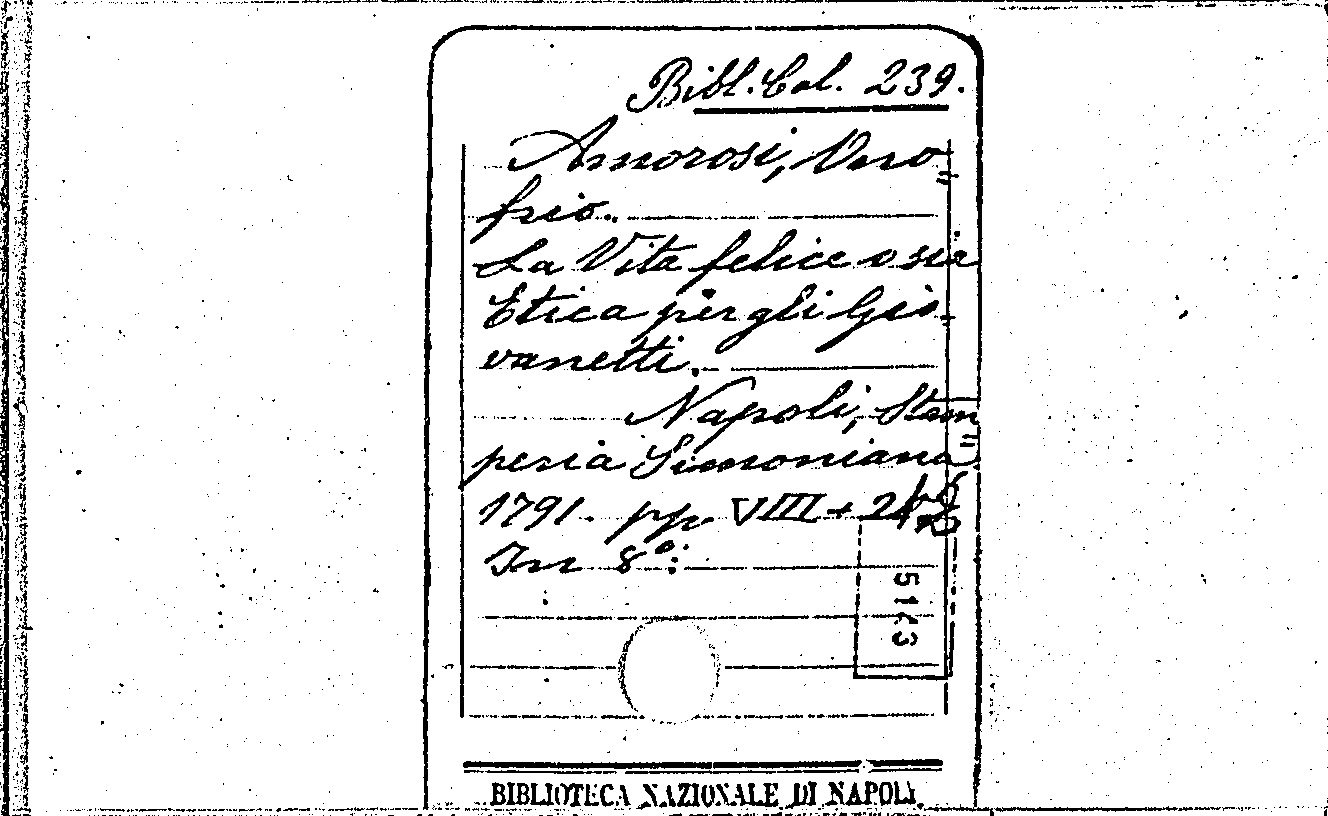 Bibl. Col. 239.
Amorosi, Ono=
frio.
La Vita felice o sia
Etica per gli Gio-
vanetti.
Napoli, Stam=
peria Simoniana
1791. pp. VIII +
In 8°:
BIBLIOTECA NAZIONALE DI NAPOLI